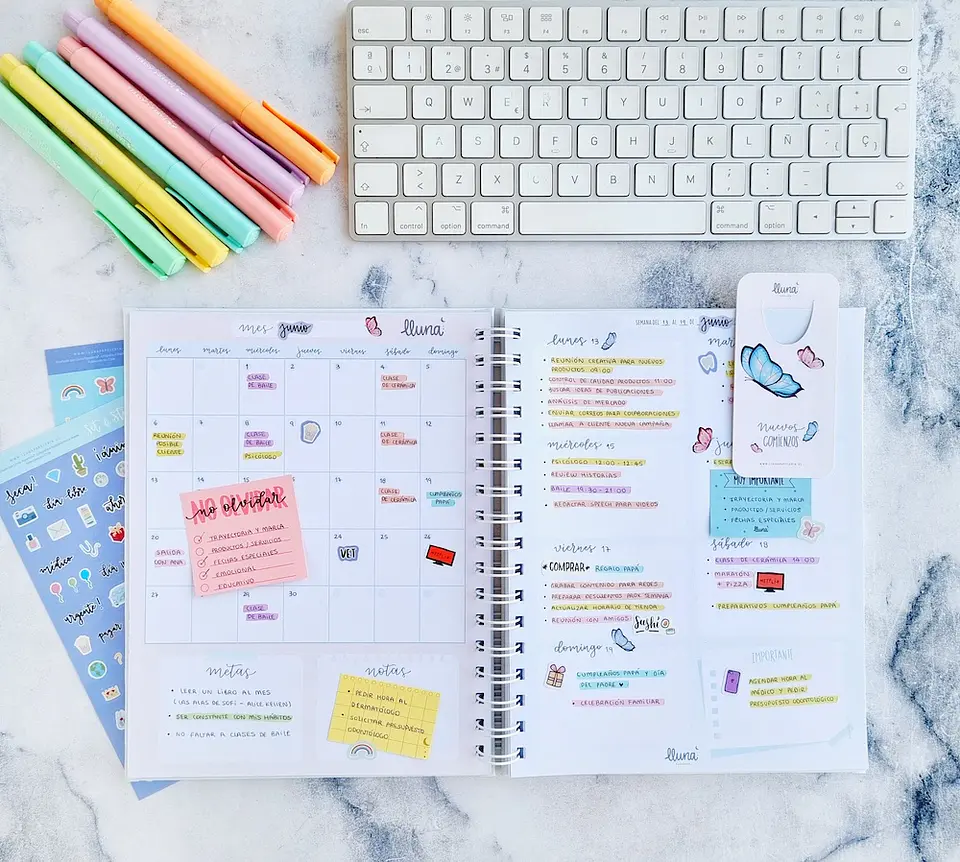 esc F1 F2 F3 F4 F5 F6 F7 F8 F9 F10 F11 F12
Q W E R T Y U I O P
A S D F G H J K L Ñ Ç
Z X C V B N M
fn control option command command option
mes junio
lluna
lunes martes miércoles jueves viernes sábado domingo
1 2 3 4 5
CLASE DE BAILE
CLASE DE CERÁMICA
6 7 8 9 10 11 12
REUNIÓN POSIBLE CLIENTE
CLASE DE BAILE
PSICÓLOGO
CLASE DE CERÁMICA
13 14 15 17 18 19
CLASE DE CERÁMICA
CUMPLEAÑOS PAPÁ
NO OLVIDAR
no olvidar
TRAYECTORIA Y MARCA
PRODUCTOS / SERVICIOS
FECHAS ESPECIALES
EMOCIONAL
EDUCATIVO
20 24 25 26
SALIDA CON ANA
VET
27 28 29 30
CLASE DE BAILE
metas
• LEER UN LIBRO AL MES
(LAS ALAS DE SOFI - ALICE KELLEN)
• SER CONSTANTE CON MIS HÁBITOS
• NO FALTAR A CLASES DE BAILE
notas
• PEDIR HORA AL
DERMATÓLOGO
• SOLICITAR PRESUPUESTO
ODONTÓLOGO
SEMANA DEL 13 AL 19 DE junio
lunes 13
• REUNIÓN CREATIVA PARA NUEVOS
PRODUCTOS 09:00
• CONTROL DE CALIDAD PRODUCTOS 11:00
• AVISAR IDEAS DE PUBLICACIONES
• ANÁLISIS DE MERCADO
• ENVIAR CORREOS PARA COLABORACIONES
• LLAMAR A CLIENTE NUEVA CAMPAÑA
miércoles 15
• PSICÓLOGO 12:00 - 12:45
• REVIEW HISTORIAS
• BAILE 19:30 - 21:00
• REDACTAR SPEECH PARA VIDEOS
viernes 17
COMPRAR REGALO PAPÁ
• GRABAR CONTENIDO PARA REDES
• PREPARAR DESCUENTOS PROX SEMANA
• ACTUALIZAR HORARIO DE TIENDA
• REUNIÓN CON AMIGOS Sushi
domingo 19
• CUMPLEAÑOS PAPÁ Y DÍA
DEL PADRE ♥
• CELEBRACIÓN FAMILIAR
lluna
lluna
Nuevos
COMIENZOS
MUY IMPORTANTE
• TRAYECTORIA Y MARCA
• PRODUCTOS / SERVICIOS
• FECHAS ESPECIALES
lluna
sábado 18
• CLASE DE CERÁMICA 14:00
MARATÓN
+ PIZZA
• PREPARATIVOS CUMPLEAÑOS PAPÁ
IMPORTANTE
• AGENDAR HORA AL
MÉDICO Y PEDIR
PRESUPUESTO ODONTOLÓGICO
día libre
médico
urgente!